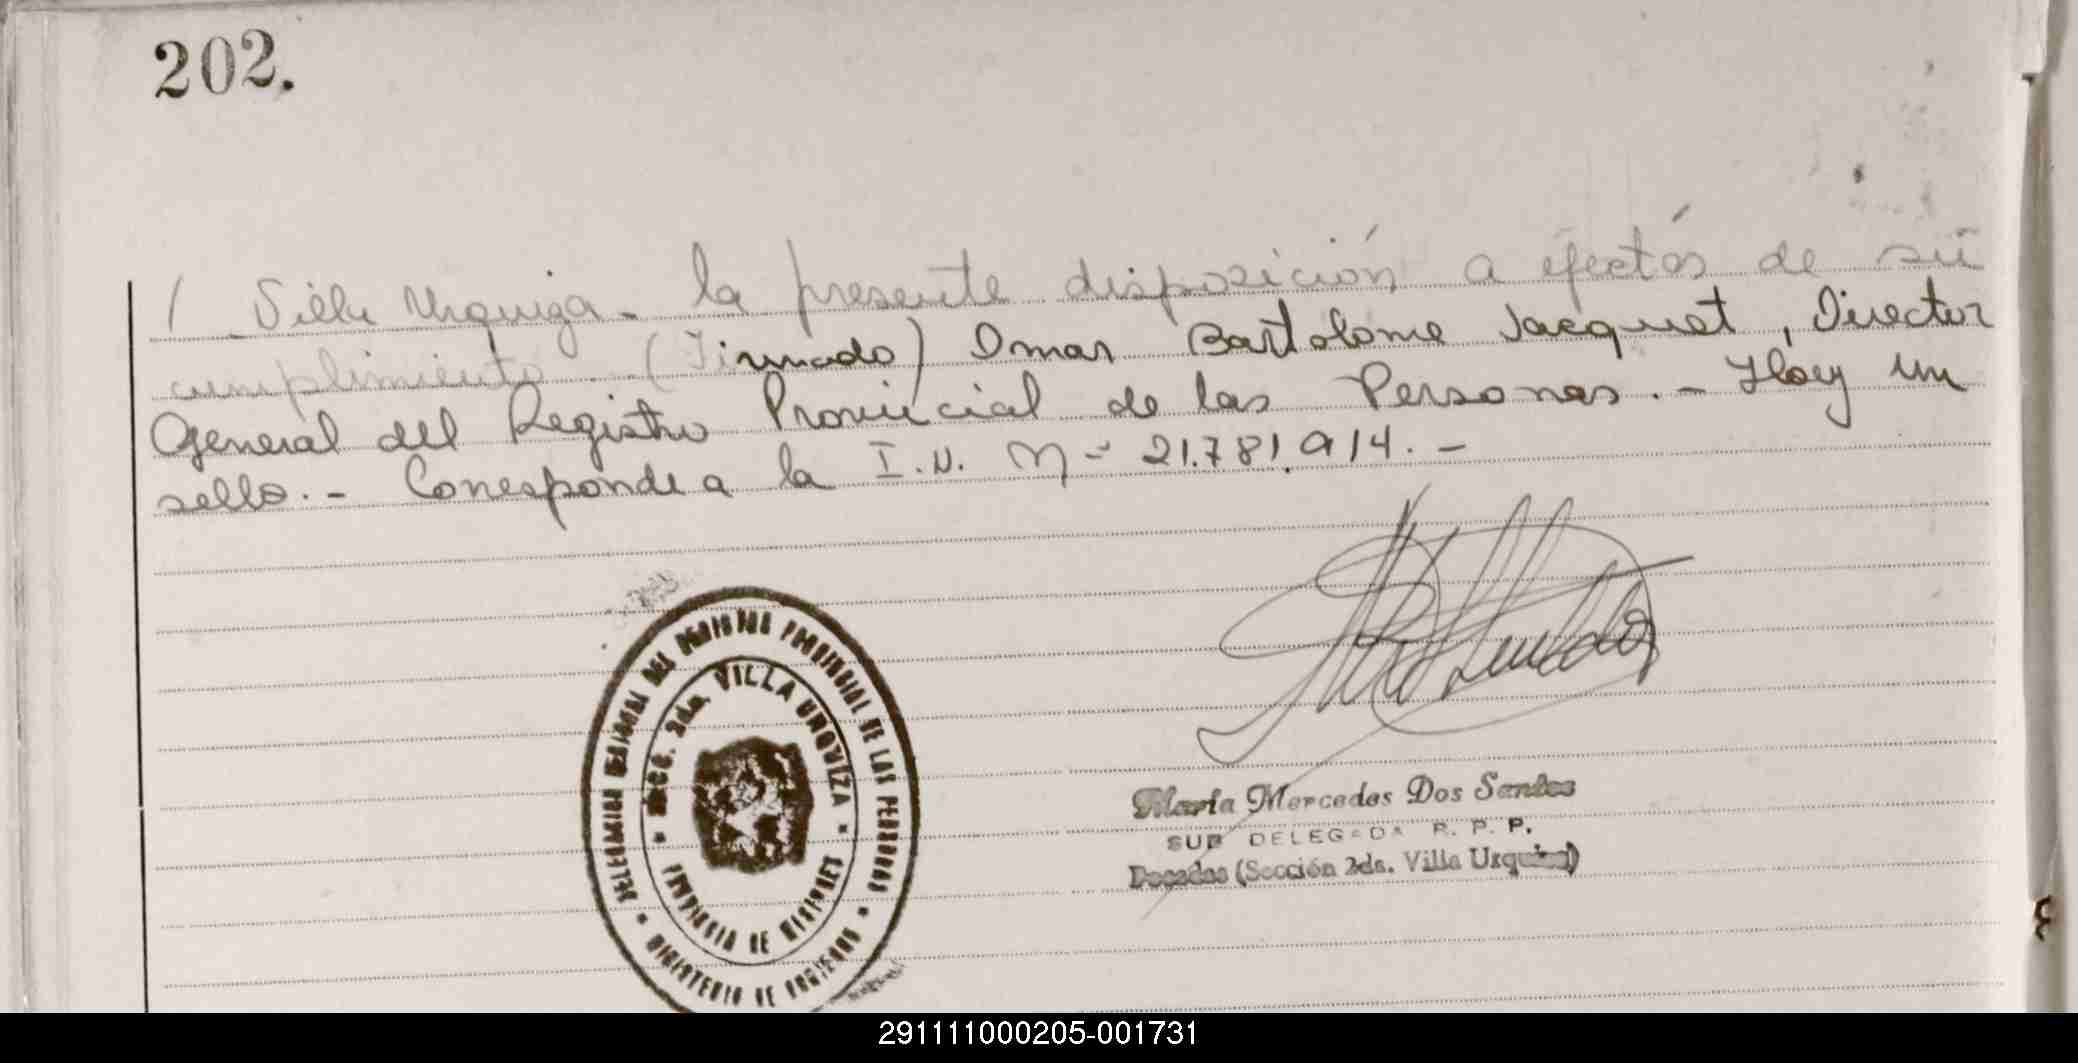 202.
/ Villa Urquiza.- la presente disposición a efectos de sú
cumplimiento. (Firmado) Omar Bartolome Jacquet, Director
General del Registro Provincial de las Personas.- Hay un
sello.- Corresponde a la I.N. Nº 21.781.914.-
DELEGACION SECCIONAL DEL REGISTRO PROVINCIAL DE LAS PERSONAS
SECC. 2da. VILLA URQUIZA
PROVINCIA DE MISIONES
MINISTERIO DE GOBIERNO
María Mercedes Dos Santos
SUB DELEGADA R. P. P.
Posadas (Sección 2da. Villa Urquiza)
291111000205-001731